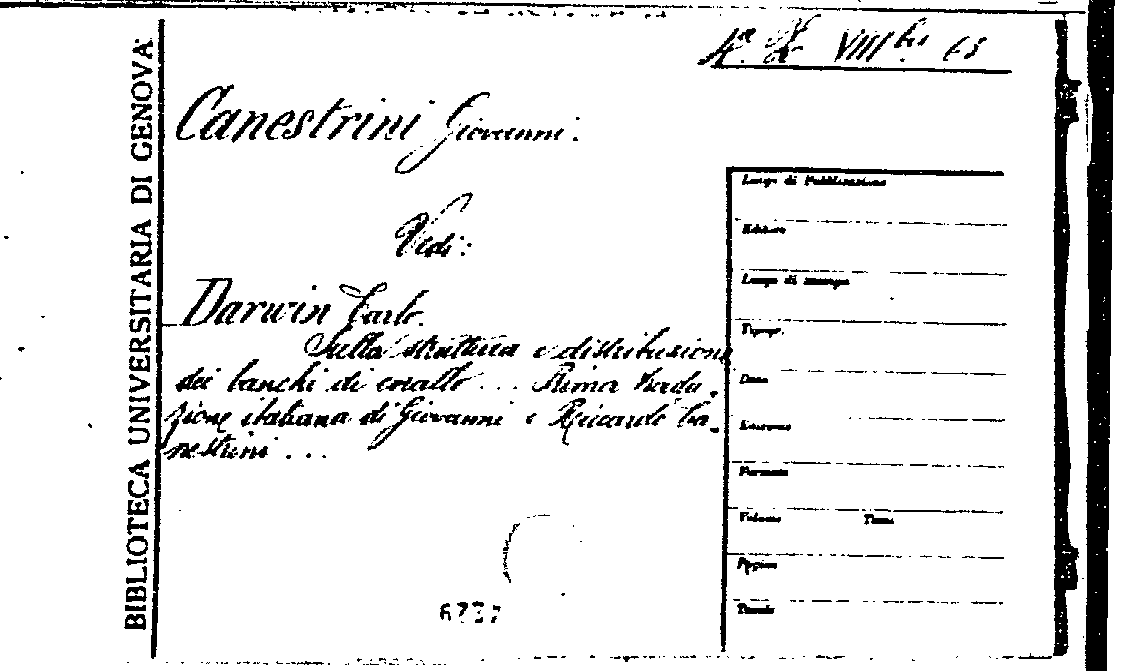 BIBLIOTECA UNIVERSITARIA DI GENOVA
VIII bis 63
Canestrini Giovanni.
Vedi:
Darwin Carlo.
Sulla struttura e distribuzione
dei banchi di corallo... Prima tradu-
zione italiana di Giovanni e Riccardo Ca-
nestrini ...
Luogo di Pubblicazione
Editore
Luogo di stampa
Tipogr.
Data
Edizione
Formato
Volume Tomo
Pagine
Tavole